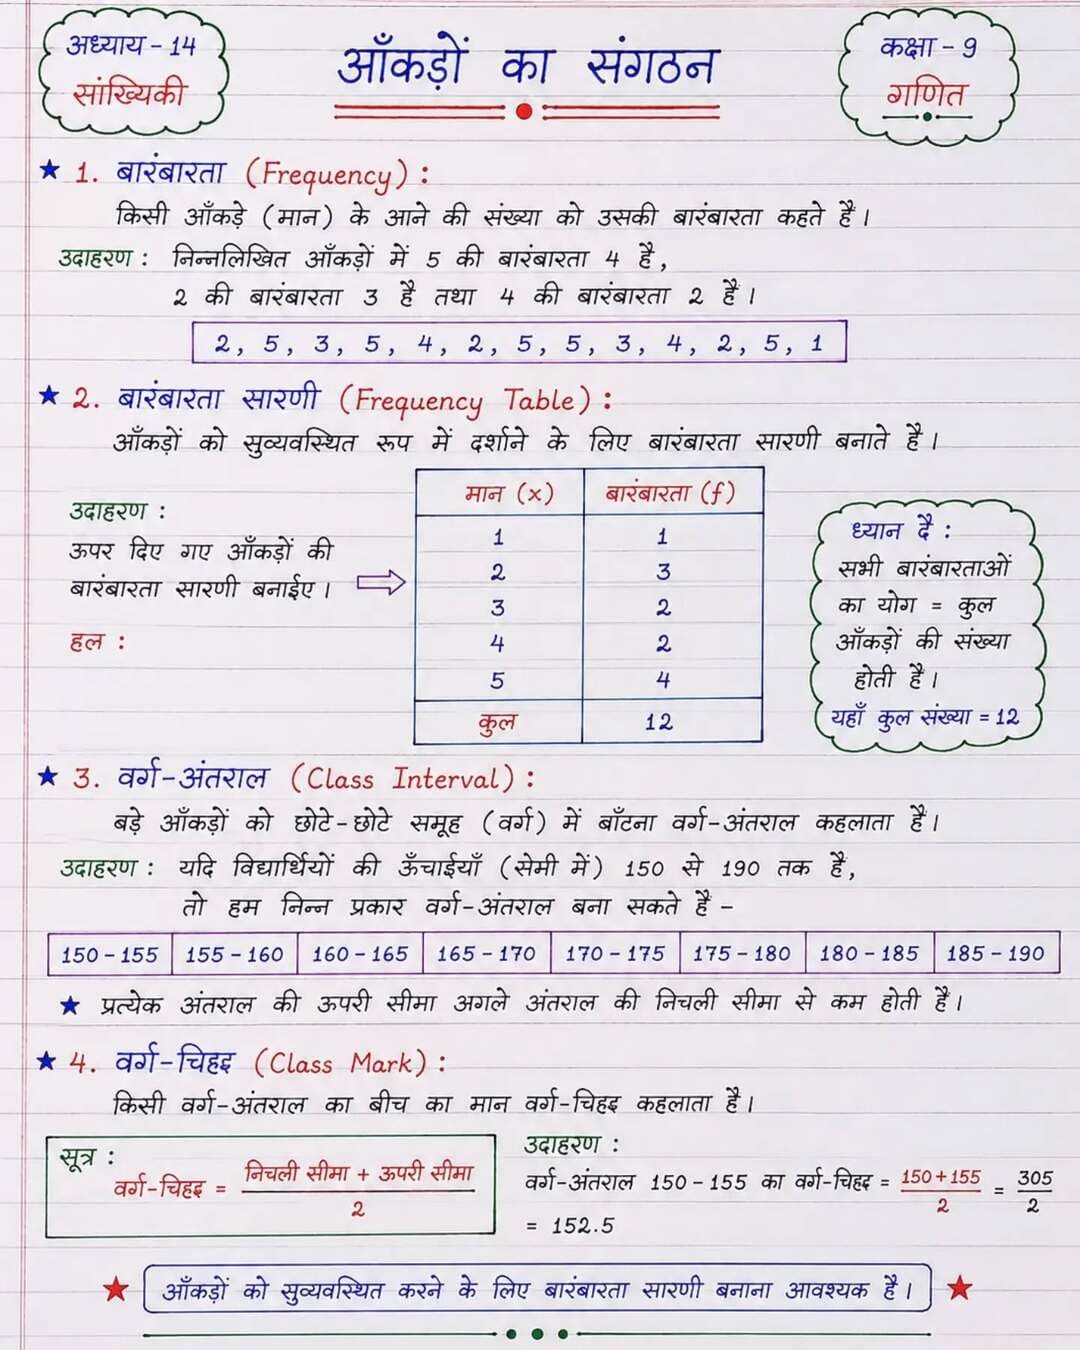 अध्याय - 14
सांख्यिकी
आँकड़ों का संगठन
कक्षा - 9
गणित
★ 1. बारंबारता (Frequency) :
किसी आँकड़े (मान) के आने की संख्या को उसकी बारंबारता कहते हैं।
उदाहरण : निन्नलिखित आँकड़ों में 5 की बारंबारता 4 है,
2 की बारंबारता 3 है तथा 4 की बारंबारता 2 है।
2, 5, 3, 5, 4, 2, 5, 5, 3, 4, 2, 5, 1
★ 2. बारंबारता सारणी (Frequency Table) :
आँकड़ों को सुव्यवस्थित रूप में दर्शाने के लिए बारंबारता सारणी बनाते है।
उदाहरण :
ऊपर दिए गए आँकड़ों की
बारंबारता सारणी बनाईए।
हल :
मान (x) बारंबारता (f)
1 1
2 3
3 2
4 2
5 4
कुल 12
ध्यान दै :
सभी बारंबारताओं
का योग = कुल
आँकड़ों की संख्या
होती है।
यहाँ कुल संख्या = 12
★ 3. वर्ग-अंतराल (Class Interval) :
बड़े आँकड़ों को छोटे-छोटे समूह (वर्ग) में बाँटना वर्ग-अंतराल कहलाता है।
उदाहरण : यदि विद्यार्थियों की ऊँचाईयाँ (सेमी में) 150 से 190 तक है,
तो हम निन्न प्रकार वर्ग-अंतराल बना सकते है -
150 - 155 155 - 160 160 - 165 165 - 170 170 - 175 175 - 180 180 - 185 185 - 190
★ प्रत्येक अंतराल की ऊपरी सीमा अगले अंतराल की निचली सीमा से कम होती है।
★ 4. वर्ग-चिहइ (Class Mark) :
किसी वर्ग-अंतराल का बीच का मान वर्ग-चिहइ कहलाता है।
सूत्र :
वर्ग-चिहइ = निचली सीमा + ऊपरी सीमा / 2
उदाहरण :
वर्ग-अंतराल 150 - 155 का वर्ग-चिहइ = 150 + 155 / 2 = 305 / 2
= 152.5
★ आँकड़ों को सुव्यवस्थित करने के लिए बारंबारता सारणी बनाना आवश्यक है। ★